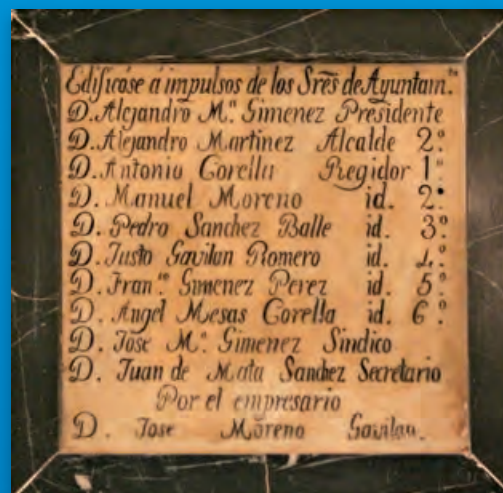 Edificóse á impulsos de los Sres. de Ayuntam.to
D. Alejandro M.ª Gimenez Presidente
D. Alejandro Martinez Alcalde 2.º
D. Antonio Corella Regidor 1.º
D. Manuel Moreno id. 2.º
D. Pedro Sanchez Balle id. 3.º
D. Justo Gavilan Romero id. 4.º
D. Fran.co Gimenez Perez id. 5.º
D. Angel Mesas Corella id. 6.º
D. Jose M.ª Gimenez Sindico
D. Juan de Mata Sanchez Secretario
Por el empresario
D. Jose Moreno Gavilan.